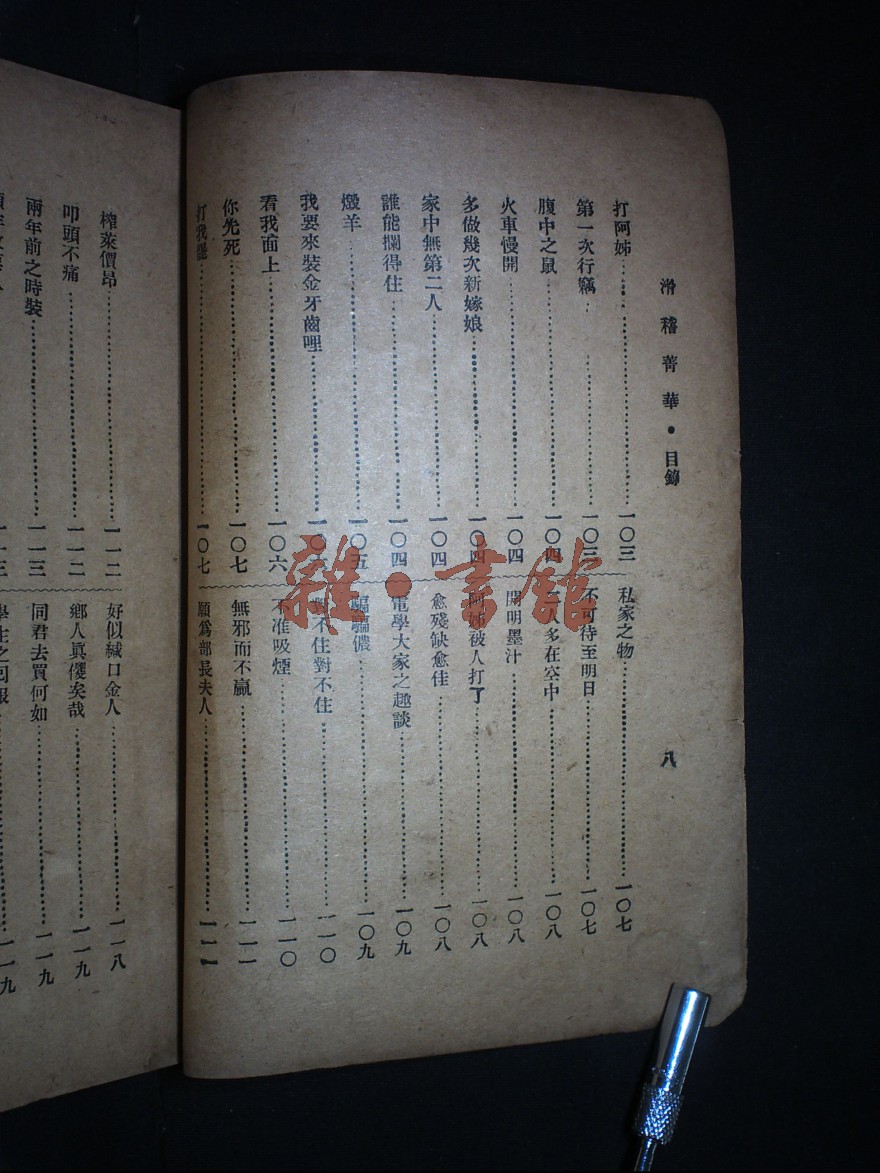 滑稽菁華・目錄
八
打阿姊……一〇三
第一次行竊……一〇三
腹中之鼠……一〇四
火車慢開……一〇四
多做幾次新嫁娘……一〇四
家中無第二人……一〇四
誰能攔得住……一〇四
燬羊……一〇五
我要來裝金牙齒哩……一〇六
看我面上……一〇六
你先死……一〇七
打我罷……一〇七
私家之物……一〇七
不可待至明日……一〇七
人多在空中……一〇八
開明墨汁……一〇八
阿姊被人打了……一〇八
愈殘缺愈佳……一〇八
電學大家之趣談……一〇九
騙騙儂……一〇九
對不住對不住……一一〇
不准吸煙……一一〇
無邪而不贏……一一一
願爲部長夫人……一一一
榨菜價昂……一一二
叩頭不痛……一一二
兩年前之時裝……一一三
一一三
好似緘口金人……一一八
鄉人眞儍矣哉……一一九
同君去買何如……一一九
一一九
雜・書館